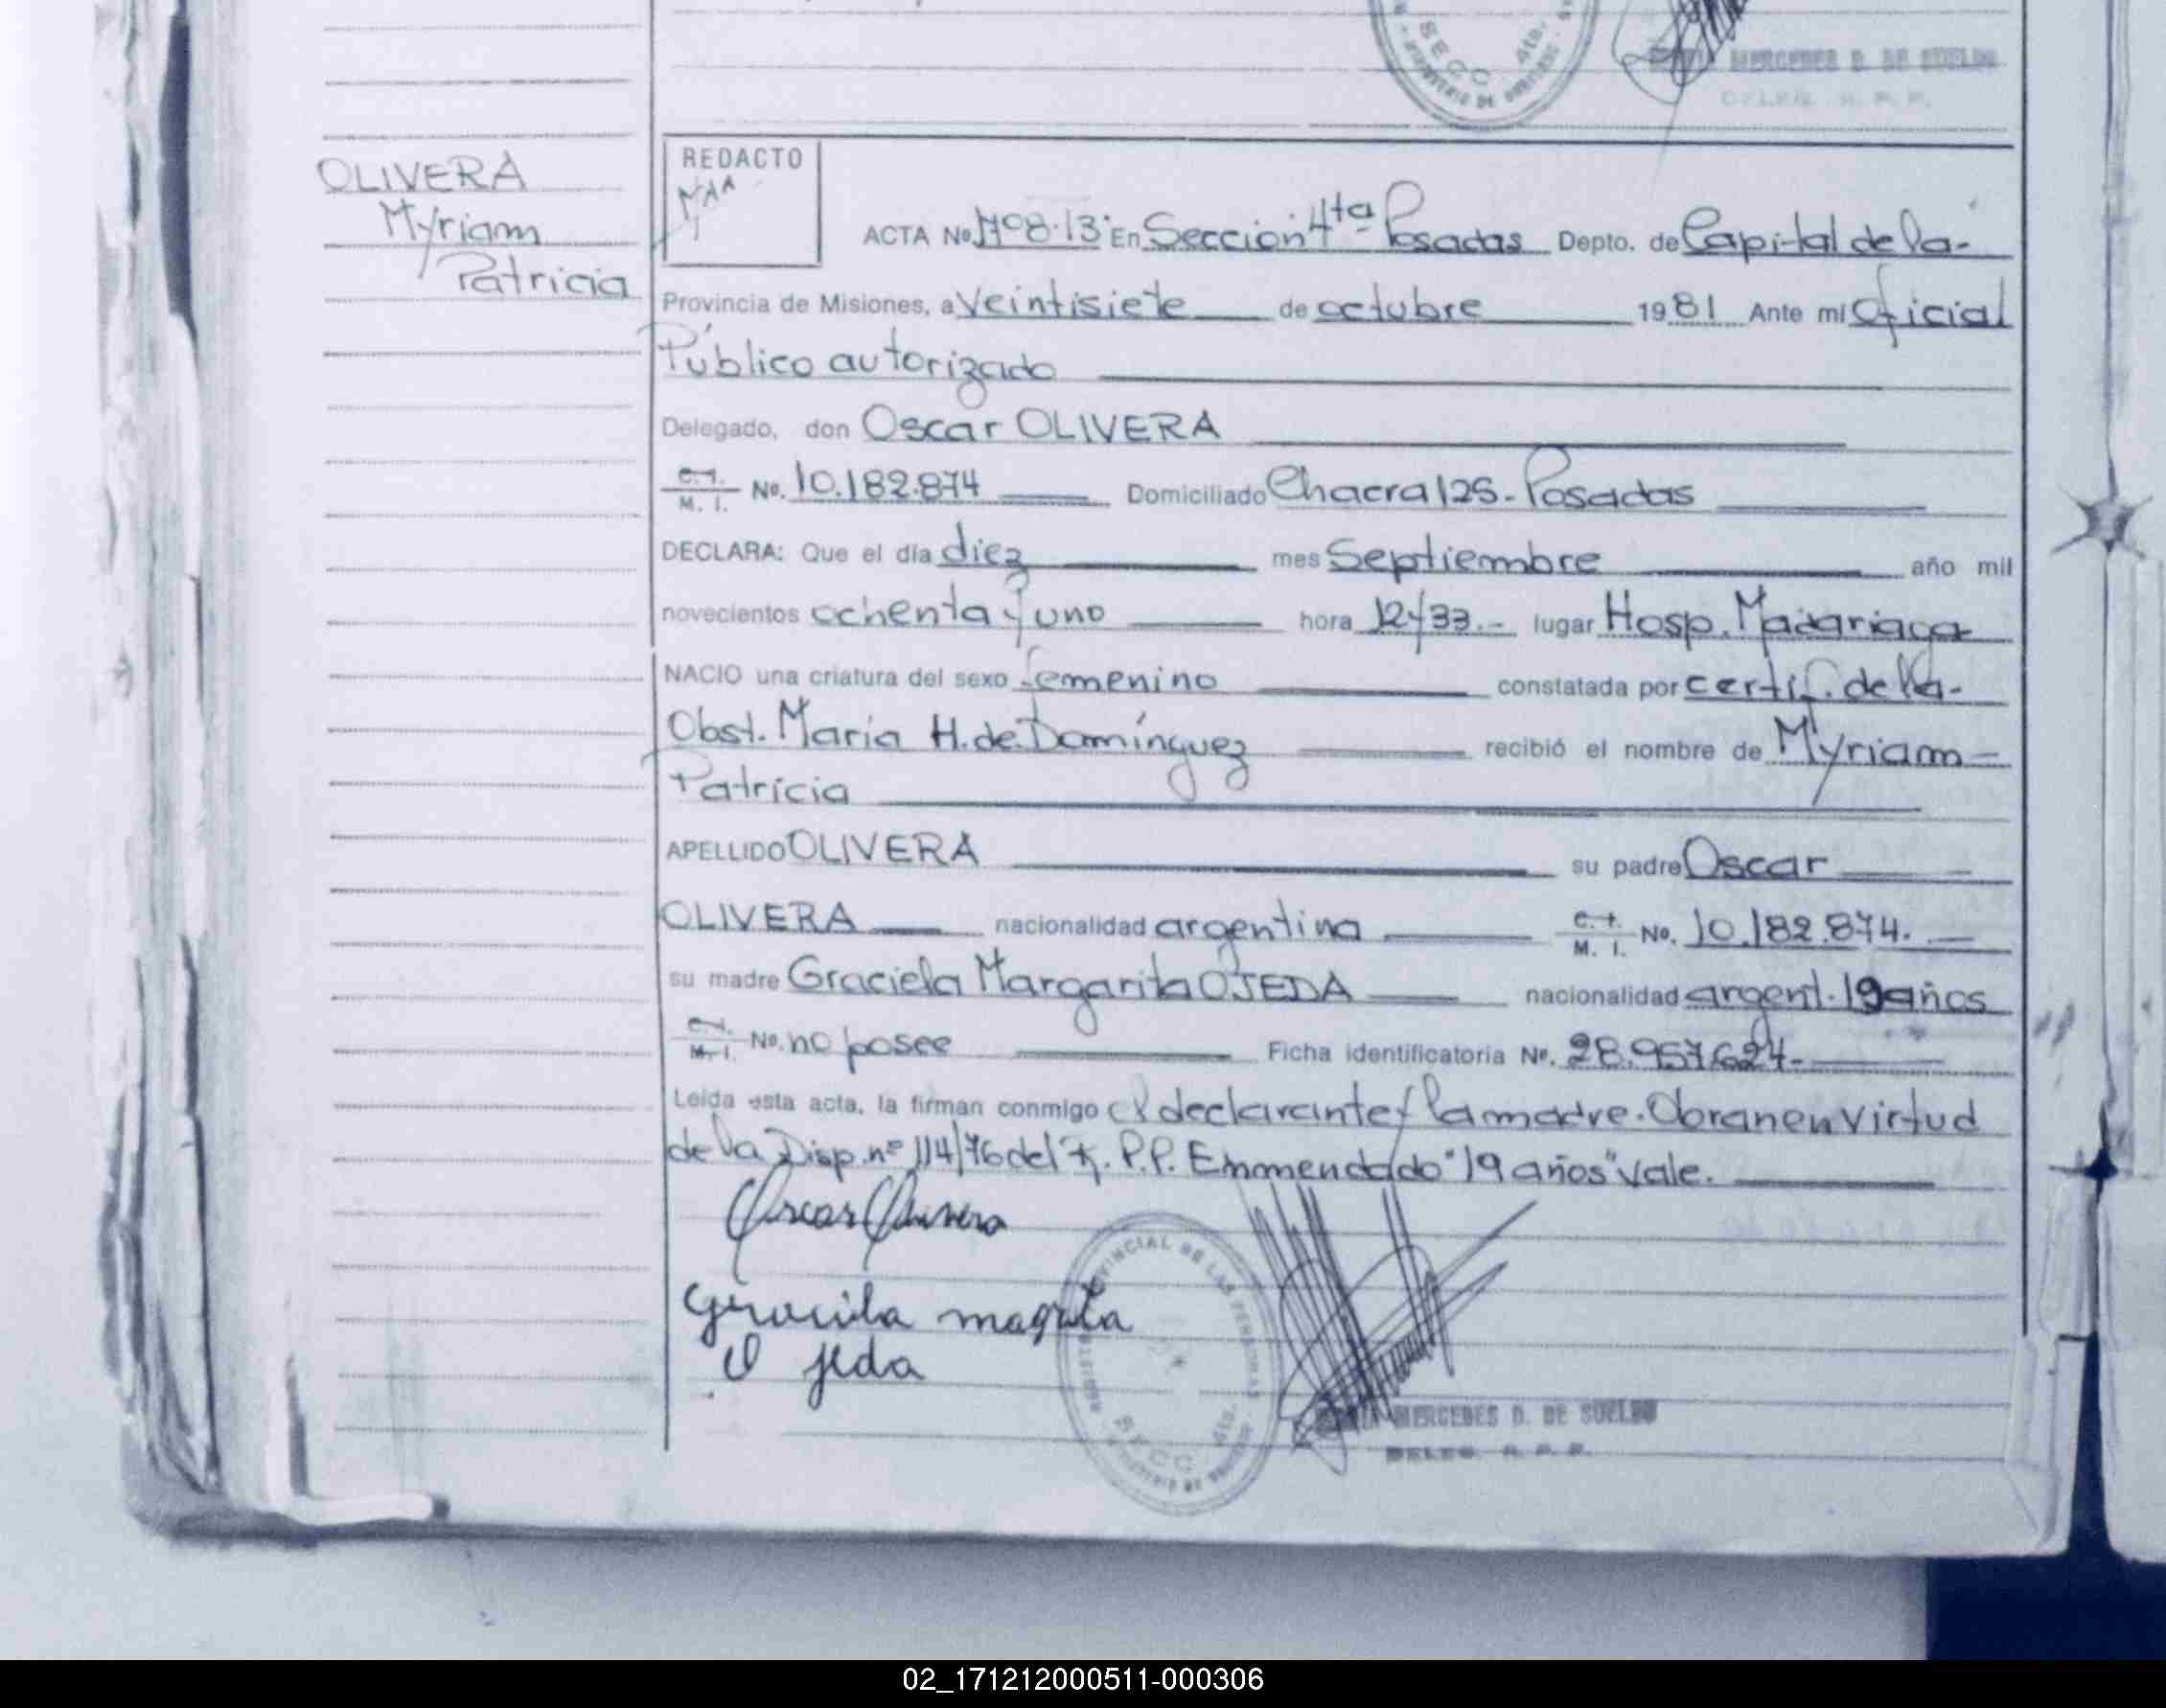 SECC 4ta.
MINISTERIO DE GOBIERNO
MERCEDES D. DE SUELDO
DELEG. R. P. P.
OLIVERA
Myriam
Patricia
REDACTO
ACTA No 1708.13 En Sección 4ta- Posadas Depto. de Capital de la-
Provincia de Misiones, a Veintisiete de octubre 1981 Ante mí Oficial
Público autorizado
Delegado, don Oscar OLIVERA
C.I. M. I. No. 10.182.874 Domiciliado Chacra 125.- Posadas
DECLARA: Que el día diez mes Septiembre año mil
novecientos ochenta y uno hora 12y33.- lugar Hosp. Madariaga
NACIO una criatura del sexo femenino constatada por certif. de la-
Obst. María H. de Domínguez recibió el nombre de Myriam-
Patricia
APELLIDO OLIVERA su padre Oscar
OLIVERA nacionalidad argentina C.I. M. I. No. 10.182.874.
su madre Graciela Margarita OJEDA nacionalidad argent. 19 años
C.I. M. I. No. no posee Ficha identificatoria No. 28.957.627.-
Leída esta acta, la firman conmigo el declarante y la madre. Obran en virtud
de la Disp. nº 114/76 del R. P.P. Emmendado "19 años" vale.
Oscar Olivera
PROVINCIAL DE LAS PERSONAS
Graciela magrita
O jeda
SECC 4ta.
MERCEDES D. DE SUELDO
DELEG. R. P. P.
02_171212000511-000306